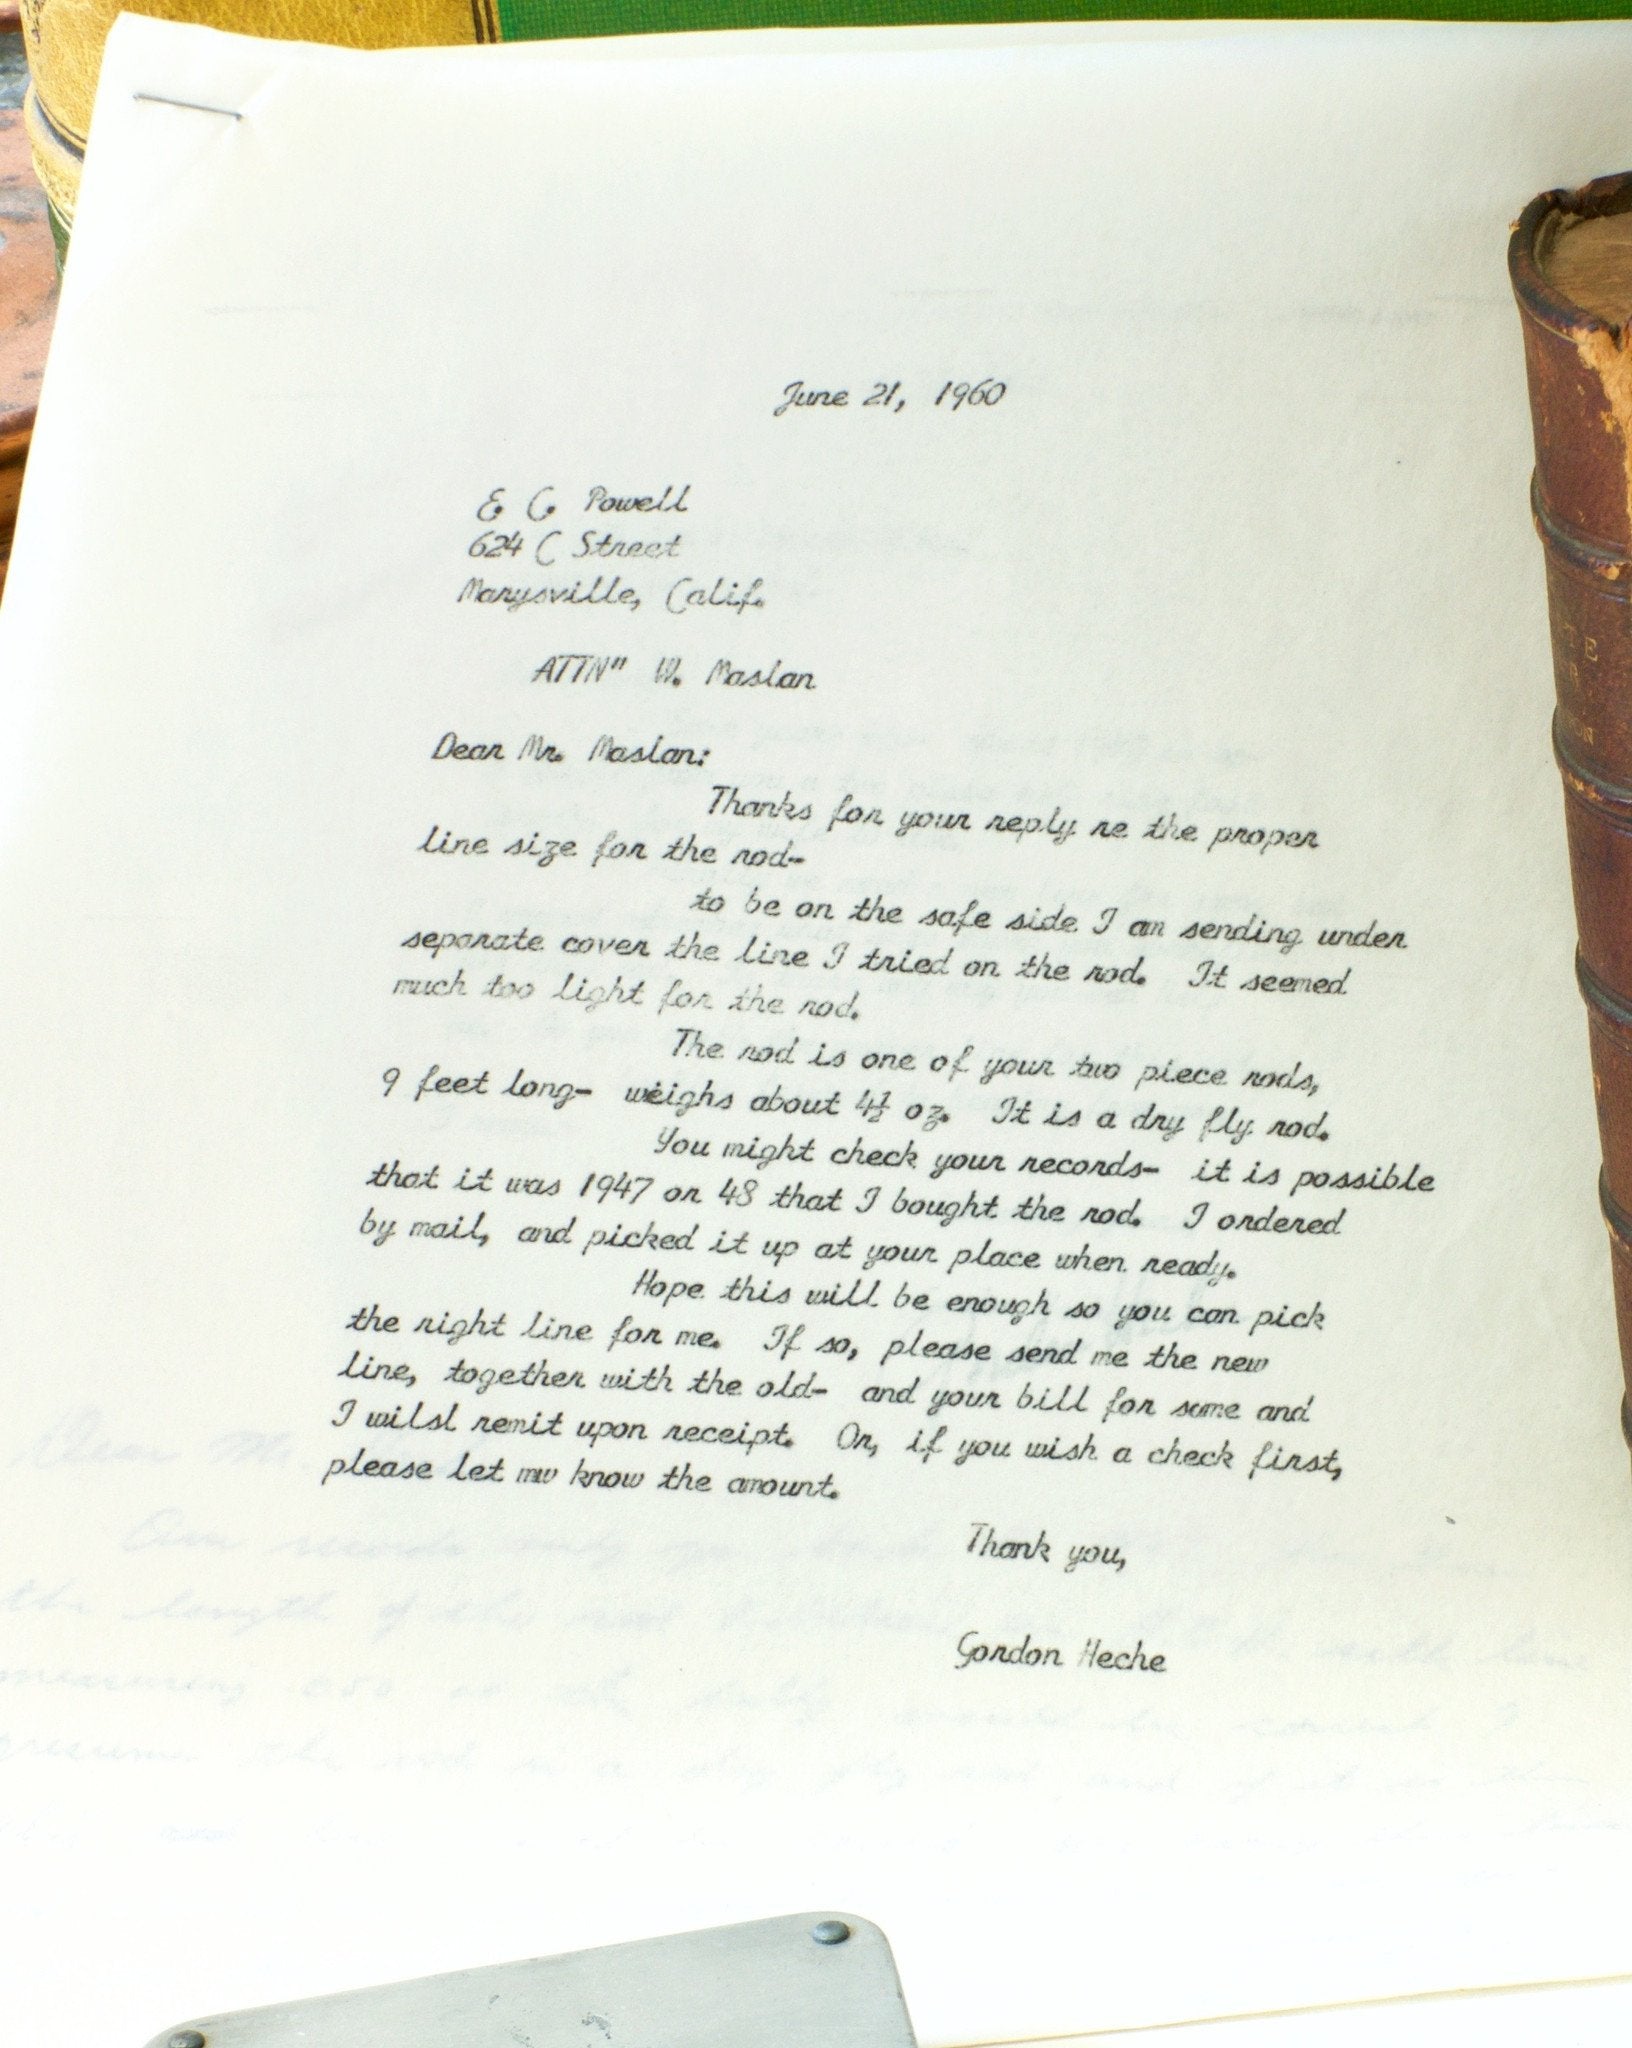 June 21, 1960
E. C. Powell
624 C Street
Marysville, Calif.
ATTN" W. Maslan
Dear Mr. Maslan:
Thanks for your reply re the proper
line size for the rod-
to be on the safe side I am sending under
separate cover the line I tried on the rod. It seemed
much too light for the rod.
The rod is one of your two piece rods,
9 feet long- weighs about 4½ oz. It is a dry fly rod.
You might check your records- it is possible
that it was 1947 or 48 that I bought the rod. I ordered
by mail, and picked it up at your place when ready.
Hope this will be enough so you can pick
the right line for me. If so, please send me the new
line, together with the old- and your bill for same and
I wilsl remit upon receipt. Or, if you wish a check first,
please let mw know the amount.
Thank you,
Gordon Heche